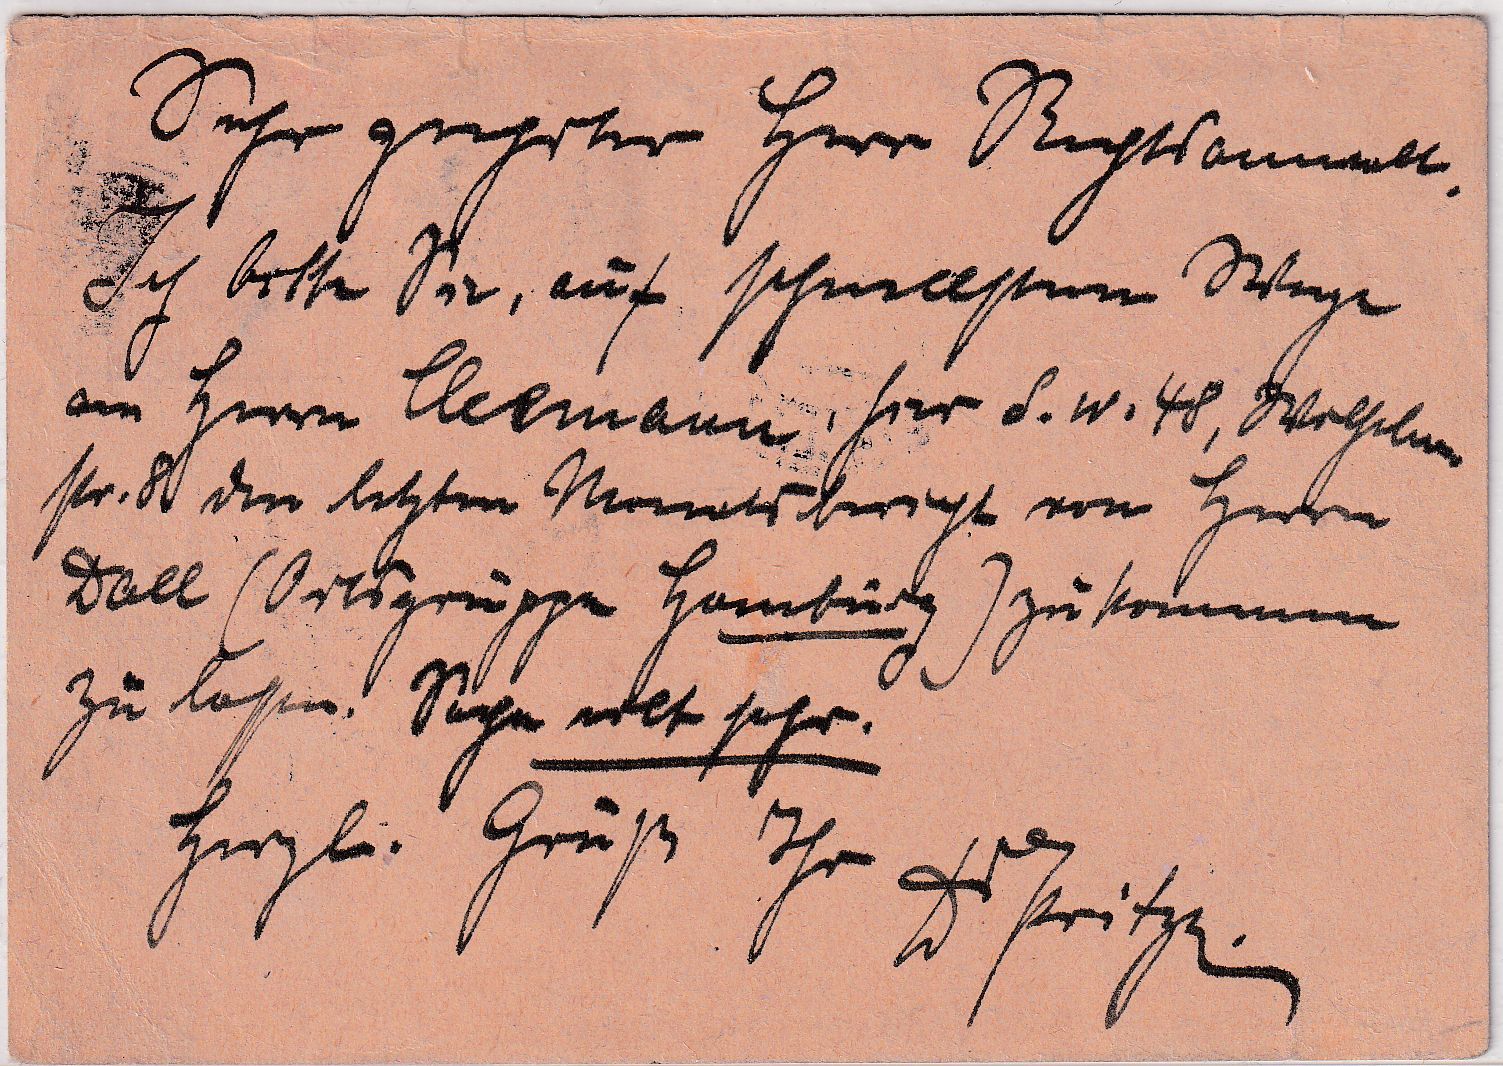 Sehr geehrter Herr Rechtsanwalt.
Ich bitte Sie, auf schnellstem Wege
an Herrn Cleemann, hier S.W. 48, Wilhelm
str. 8 den letzten Monatsbericht von Herrn
Doll (Ortsgruppe Hamburg) zukommen
zu lassen. Sache eilt sehr.
Herzl. Gruß Ihr Dr Pritze.